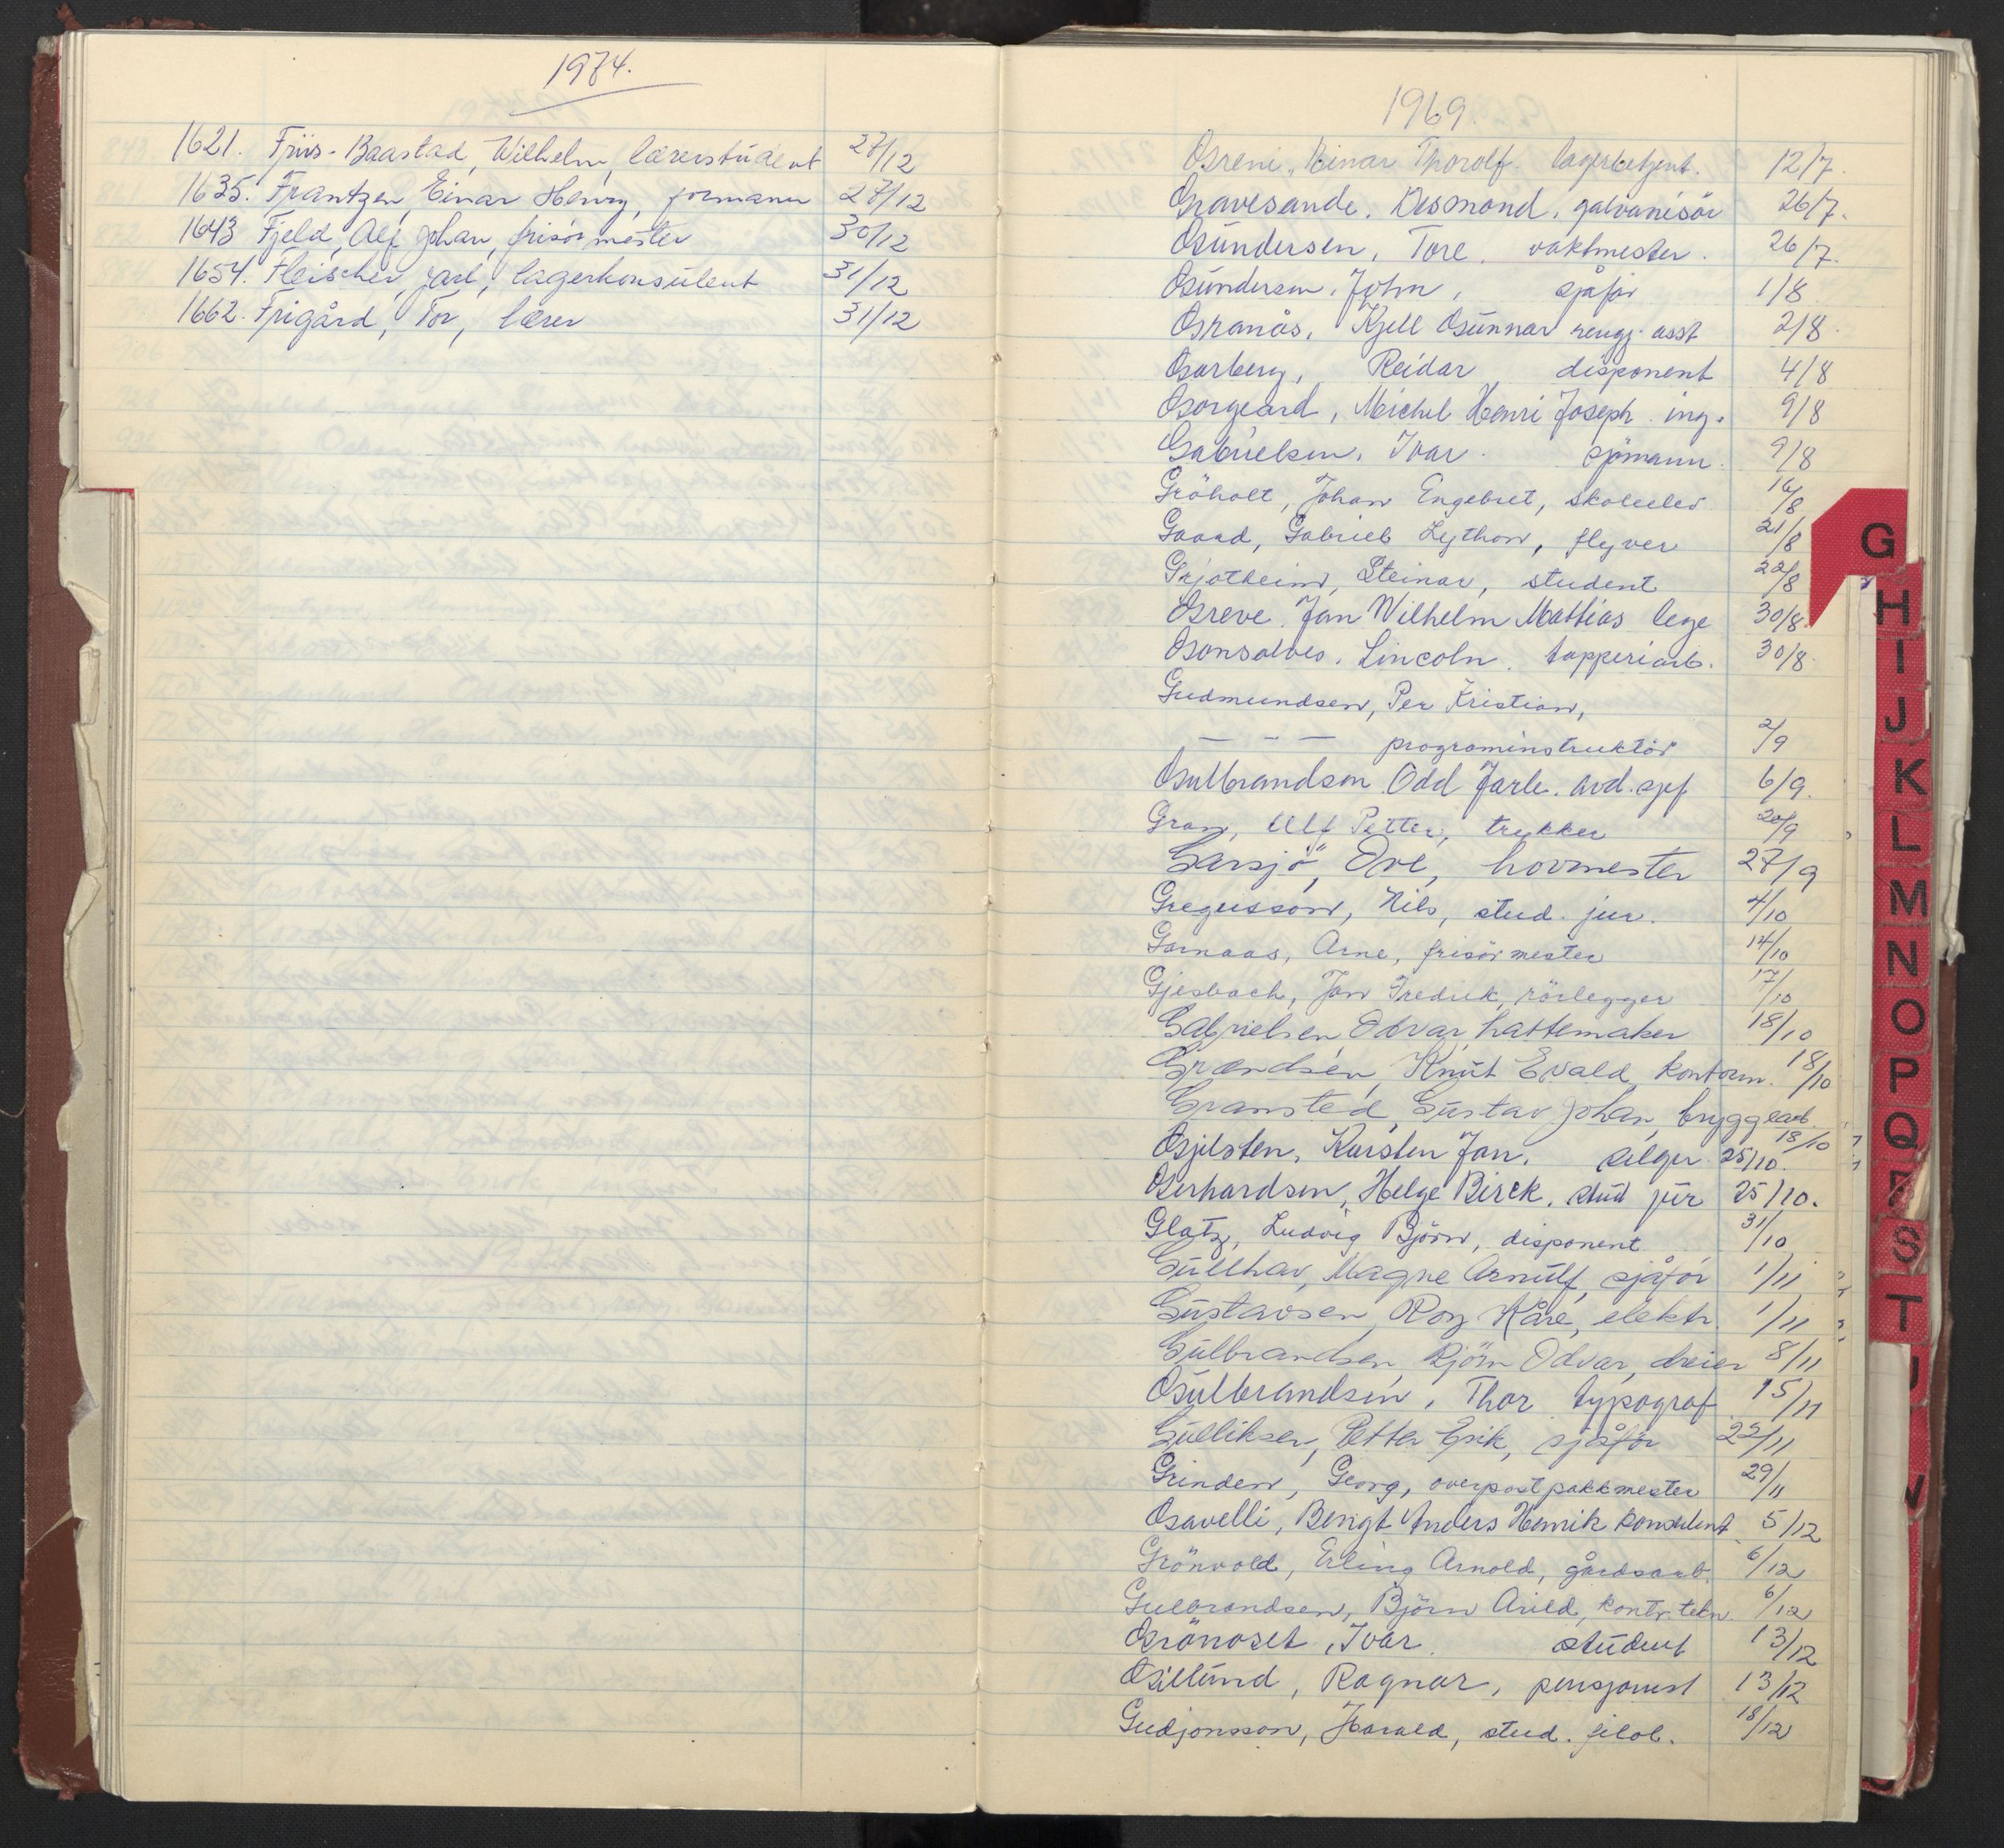 1974.
1621. Friis-Baastad, Wilhelm, lærerstudent 27/12
1635. Frantzen, Einar Henry, formann 27/12
1643 Fjeld, Alf Johan, frisørmester 30/12
1654. Fleischer, Jarl, lagerkonsulent 31/12
1662. Frigård, Tor, lærer 31/12
1969.
Greni, Einar Thorolf. lagerbetjent. 12/7.
Gravesande, Desmond, galvanisör 26/7.
Gundersen, Tore, vaktmester. 26/7.
Gundersen, John, sjåför 1/8
Granås, Kjell Gunnar rengj. asst 2/8.
Garberg, Reidar disponent 4/8
Gorgeard, Michel Henri Joseph. ing. 9/8
Gabrielsen, Ivar. sjömann. 9/8
Gröholt, Johan Engebret, skoleelev 16/8
Gaard, Gabriel Lython, flyver 21/8
Grjotheim, Steinar, student 22/8
Greve, Jan Wilhelm Mathias lege 30/8.
Gonsalves, Lincoln. tapperiarb. 30/8.
Gudmundsen, Per Kristian,
— - — programinstruktör 2/9
Gulbrandsen Odd Jarle. avd.sjef 6/9.
Gran, Ulf Petter, trykker 20/9
Garsjö, Ove, hovmester 27/9
Gregusson, Nils, stud. jur. 4/10
Garnaas, Arne, frisörmester 14/10
Gjesbach, Jan Fredrik, rörlegger 17/10
Gabrielsen, Odvar, hattemaker 18/10
Grændsen, Knut Evald, kontorm. 18/10
Gransted, Gustav Johan, bryggearb. 18/10
Gjelsten, Karsten Jan, selger 25/10.
Gerhardsen, Helge Birck, stud jur 25/10.
Glatz, Ludvig Björn, disponent 31/10
Gullhav, Magne Arnulf, sjåför 1/11
Gustavsen, Roy Kåre, elektr. 1/11
Gulbrandsen, Björn Odvar, dreier 8/11
Gulbrandsen, Thor typograf 15/11
Gulliksen, Petter Erik, sjåför 22/11
Grinden, Georg, overpostpakkmester 29/11
Gavelli, Bengt Anders Henrik konsulent 5/12
Grönvold, Erling Arnold, gårdsarb. 6/12
Gulbrandsen, Björn Arild, kontr.tekn. 6/12
Grönoset, Ivar. student 13/12
Gillund, Ragnar, pensjonist 13/12
Gudjonsson, Harald, stud. filol. 18/12
G
H
I
J
K
L
M
N
O
P
Q
R
S
T
U
V